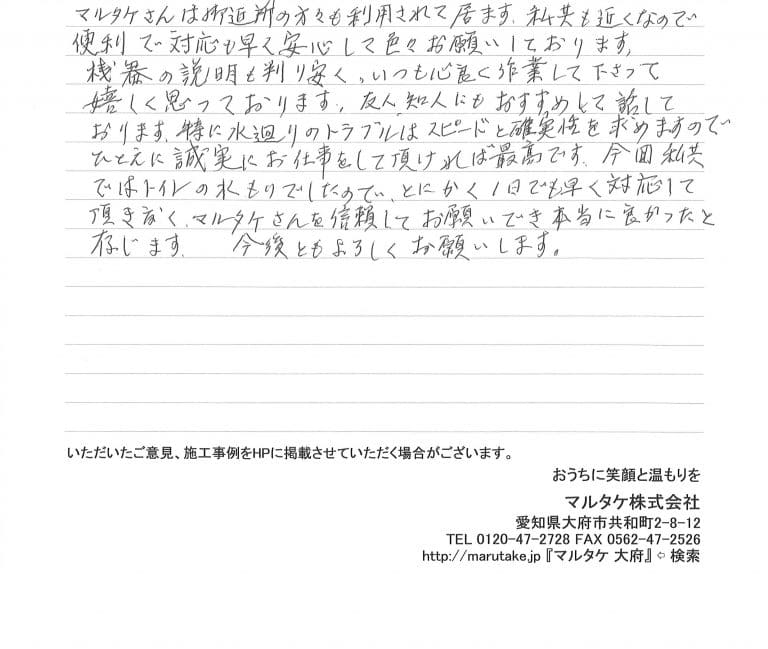 マルタケさんは御近所の方々も利用されて居ます。私共も近くなので
便利で対応も早く安心して色々お願いしております。
機器の説明も判り安く、いつも心良く作業して下さって
嬉しく思っております。友人、知人にもおすすめとして話して
おります。特に水廻りのトラブルはスピードと確実性を求めますので
ひとえに誠実にお仕事をして頂ければ最高です。今回私共
ではトイレの水もりでしたので、とにかく1日でも早く対応して
頂きたく、マルタケさんを信頼してお願いでき本当に良かったと
存じます。 今後ともよろしくお願いします。
いただいたご意見、施工事例をHPに掲載させていただく場合がございます。
おうちに笑顔と温もりを
マルタケ株式会社
愛知県大府市共和町2-8-12
TEL 0120-47-2728 FAX 0562-47-2526
http://marutake.jp『マルタケ 大府』⇦検索